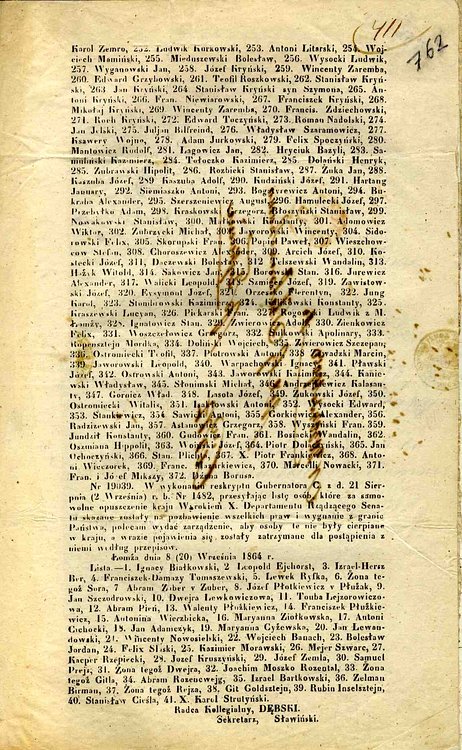 411
762
Karol Zemro, 252. Ludwik Korkowski, 253. Antoni Litarski, 254. Woj-
ciech Mamiński, 255. Mieduszewski Bolesław, 256. Wysocki Ludwik,
257. Wyganowski Jan, 258. Józef Kryński, 259. Wincenty Zaremba,
260. Edward Grzybowski, 261. Teofil Roszkowski, 262. Stanisław Kryń-
ski, 263 Jan Kryński, 264 Stanisław Kryński syn Szymona, 265. An-
toni Kryński, 266. Fran. Niewiarowski, 267. Franciszek Kryński, 268.
Mikołaj Kryński, 269. Wincenty Zaremba, 270. Francis. Zdziechowski,
271. Roch Kryński, 272. Edward Toczyński, 273. Roman Nadolski, 274.
Jan Jelski, 275. Juljan Bilfreind, 276. Władysław Szaramowicz, 277.
Ksawery Wojno, 278. Adam Jurkowski, 279. Felix Spoczyński, 280.
Mantowicz Rudolf, 281. Łagowicz Jan, 282. Hryciuk Bazyli, 283. Sa-
mulniski Kazimierz, 284. Tołoczko Kazimierz, 285. Dołański Henryk,
285. Zubrawski Hipolit, 286. Rozbicki Stanisław, 287. Zuka Jan, 288.
Kaszuba Józef, 289 Kaszuba Adolf, 290. Kudaiński Józef, 291. Hartang
January, 292. Siemiaszko Antoni, 293. Bogatyrewicz Antoni, 294. Bu-
kraba Alexander, 295. Szerszeniewicz August, 296. Hamulecki Józef, 297.
Przebytko Adam, 298. Kraskowski Grzegorz, Stanisław, 299.
Nowakowski Stanisław, 300. Malewski Konstanty, 301. Ajonowicz
Wiktor, 302. Zubrzycki Michał, 303. Jaworski Wincenty, 304. Sido-
rowski Felix, 305. Skorupski Fran. 306. Popin Paweł, 307. Wieszchow-
cow Stefan, 308. Choroszewicz Alexander, 309. Arcieh Józef, 310. Ko-
stecki Józef, 311, Daczewski Bolesław, 312 Telszewski Wandalin, 313.
Hażuk Witold, 314. Sakowicz Jan, 315. Borowski Stan. 316. Jurewicz
Alexander, 317. Walicki Leopold, 318. Samin Józef, 319. Zawistow-
ski Józef, 320. Eysymont Józef, 321. Orzeszko Florentyn, 322. Jung
Karol, 323. Stomirowski Kazimierz, 324. Konstanty, 325.
Kraszewski Lucyan, 326. Pickarski Jan, 327. Ludwik z M.
Łomży, 328. Ignatowicz Stan. 329. Zwierowicz Adolf, 330. Zienkowicz
Felix, 331. Woszczełowicz Grzegorz, 332. Sulkowski Apolinary, 333.
Kopensztejn Mordka, 334. Doliński Wojciech, 335. Zwierowicz Szczepan,
336. Ostromiecki Teofil, 337. Piotrowski Antoni, 338 Kowadzki Marcin,
339. Jaworowski Leopold, 340. Ignacy, 341. Pławski
Józef, 342. Ostrowski Antoni, 343. Jaworowski Kazimierz, 344. Kanie-
wski Władysław, 345. Słonimski Michał, 346. Andrzejkiewicz Kalasan-
ty, 347. Górnicz Wład. 348. Lasota Józef, 349. Żukowski Józef, 350.
Ostromiecki Witalis, 351. Izbikowski Antoni, 352. Wysocki Edward,
353. Stankiewicz, 354. Sawicki Antoni, 355. Korkiewicz Alexander, 356.
Radziszewski Jan, 357. Astanowicz Grzegorz, 358. Wyszyński Fran. 359.
Jundził Konstanty, 360. Gudowicz Fran. 361. Bosiacki Wandalin, 362.
Oszmiana Hippolit, 363. Wolski Józef, 364. Piotr Dolatyński, 365. Jan
Ochoczyński, 366. Stan. Plichta, 367. X. Piotr Frankiewicz, 368. Anto-
ni Wieczorek, 369. Franc. Markiewicz, 370. Marcelli Nowacki, 371.
Fran. i Józef Mikszy, 372. Uzdna Borusa.
Nr 19039. W wykonaniu reskryptu Gubernatora C. z d. 21 Sierp-
nia (2 Września) r. b. Nr 1482, przesyłając listę osób, które za samo-
wolne opuszczenie kraju Wyrokiem X. Departamentu Rządzącego Sena-
tu skazane zostały na pozbawienie wszelkich praw i wygnanie z granic
Państwa, polecam wydać zarządzenie, aby osoby te nie były cierpiane
w kraju, a wrazie pojawienia się, zostały zatrzymane dla postąpienia z
niemi według przepisów.
Łomża dnia 8 (20) Września 1864 r.
Lista.—1. Ignacy Białkowski, 2 Leopold Ejchorst, 3. Israel-Hersz
Ber, 4. Franciszek-Damazy Tomaszewski, 5. Lewek Ryfka, 6. Żona te-
goż Sora, 7 Abram Ziber v Zuber, 8. Józef Płotkiewicz v Płużak, 9.
Jan Szczodrowski, 10. Dwejra Lewkowiczowa, 11. Touba Lejzorowiczo-
wa, 12. Abram Pień, 13. Walenty Płużkiewicz, 14. Franciszek Płużkie-
wicz, 15. Antonina Wierzbicka, 16. Maryanna Ziołkowska, 17. Antoni
Cichocki, 18. Jan Adamczyk, 19. Maryanna Cyżewska, 20. Jan Lewan-
dowski, 21. Wincenty Nowosielski, 22. Wojciech Banach, 23. Bolesław
Jordan, 24. Felix Śliski, 25. Kazimier Morawski, 26. Mejer Szwarc, 27.
Kacper Rzepiecki, 28. Józef Kruszyński, 29. Józef Zemła, 30. Samuel
Prejs, 31. Żona tegoż Dwejra, 32. Joachim Moszko Rozenthal, 33. Żona
tegoż Gitla, 34. Abram Rozencwejg, 35. Izrael Bartkowski, 36. Zelman
Birman, 37. Żona tegoż Rejza, 38. Git Goldsztejn, 39. Rubin Inselsztejn,
40. Stanisław Cieśla, 41. X. Karol Strutyński.
Radca Kollegialny, DĘBSKI.
Sekretarz, Sławiński.